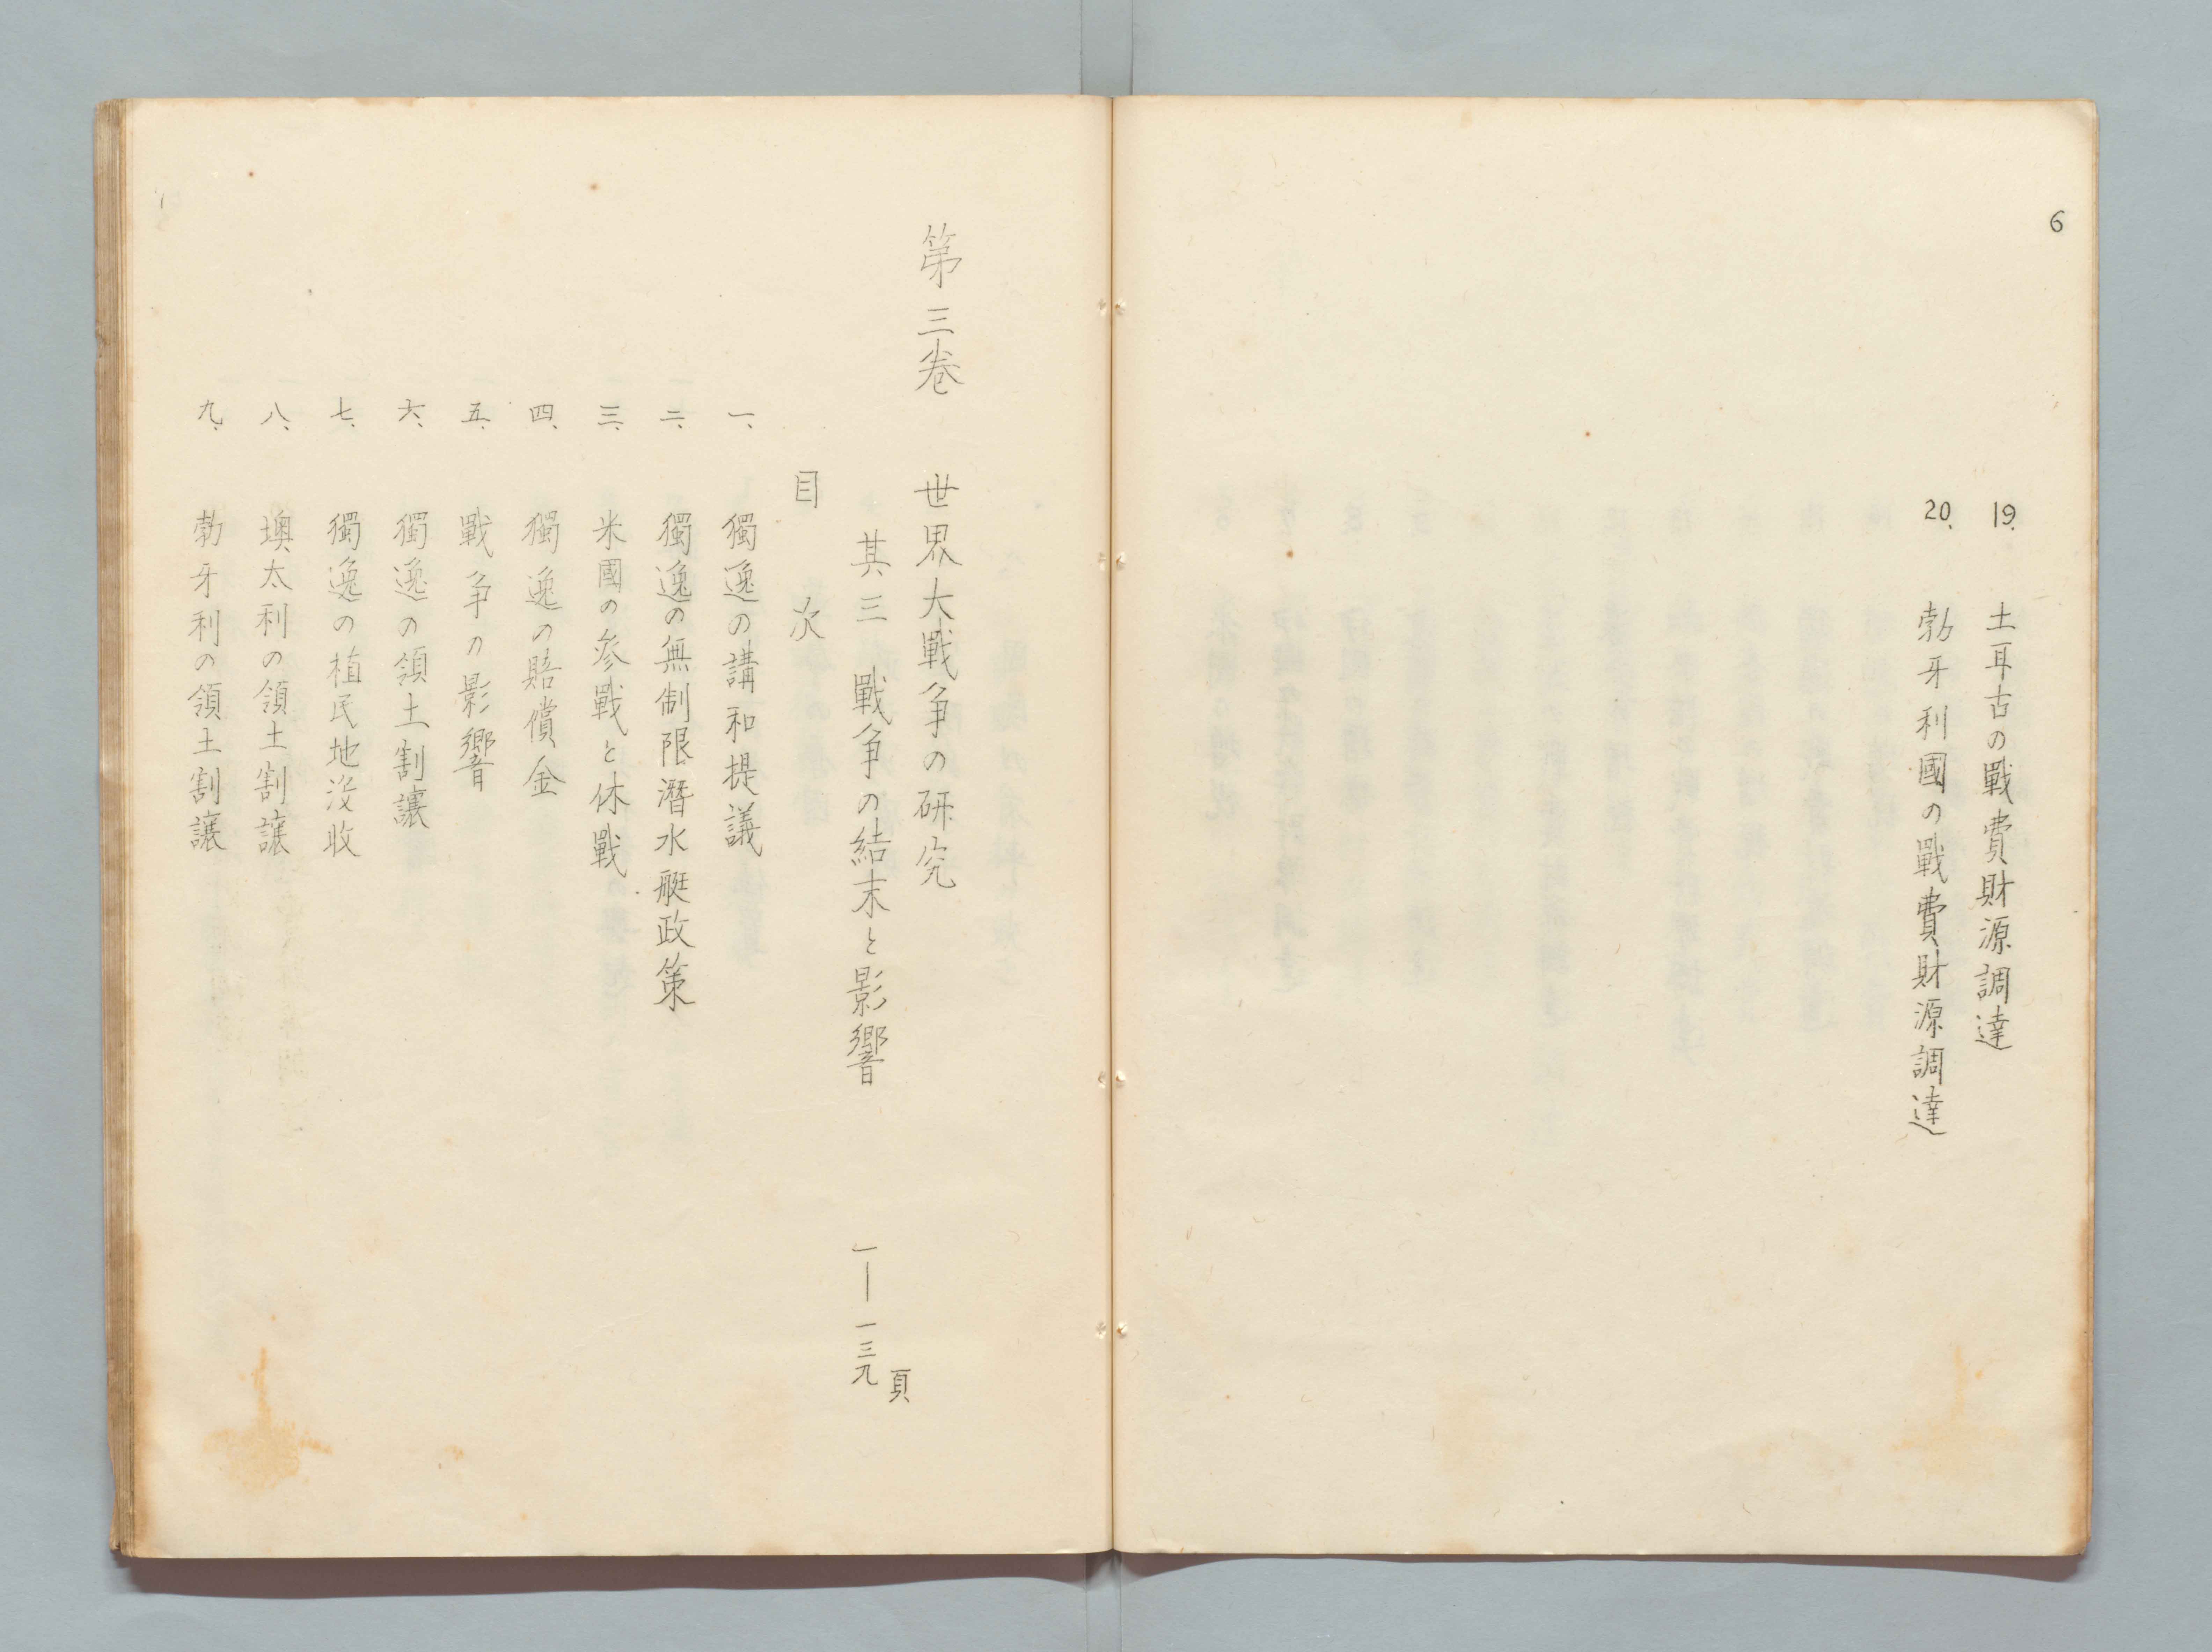 6
19. 土耳古の戰費財源調達
20. 勃牙利國の戰費財源調達
第三巻 世界大戰争の研究
其三 戰争の結末と影響 一―一三九頁
目次
一、獨逸の講和提議
二、獨逸の無制限潛水艇政策
三、米國の参戰と休戰
四、獨逸の賠償金
五、戰争の影響
六、獨逸の領土割讓
七、獨逸の植民地沒收
八、墺太利の領土割讓
九、勃牙利の領土割讓